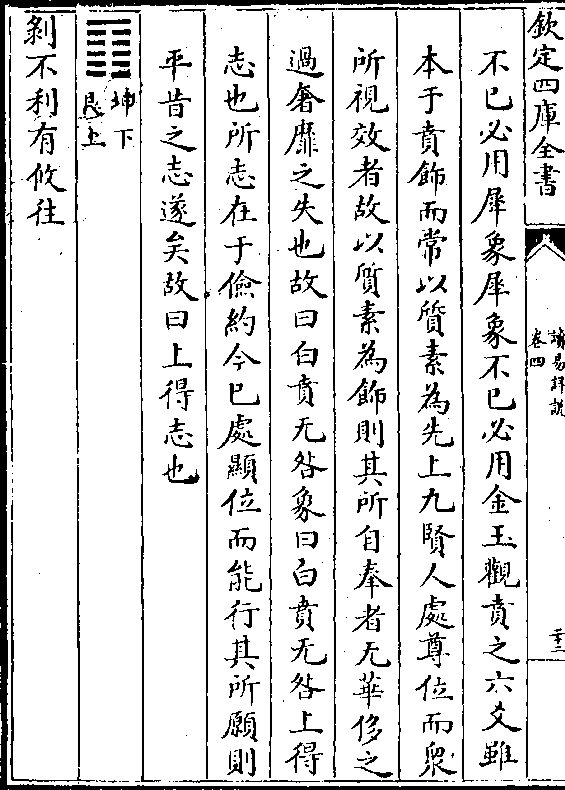 欽定四庫全書
讀易詳說
卷四
二十二
不已必用犀象犀象不已必用金玉觀賁之六爻雖
本于賁飾而常以質素為先上九賢人處尊位而衆
所視效者故以質素為飾則其所自奉者无華侈之
過奢靡之失也故曰白賁无咎象曰白賁无咎上得
志也所志在于儉約今已處顯位而能行其所願則
平昔之志遂矣故曰上得志也
坤下
艮上
剝不利有攸往